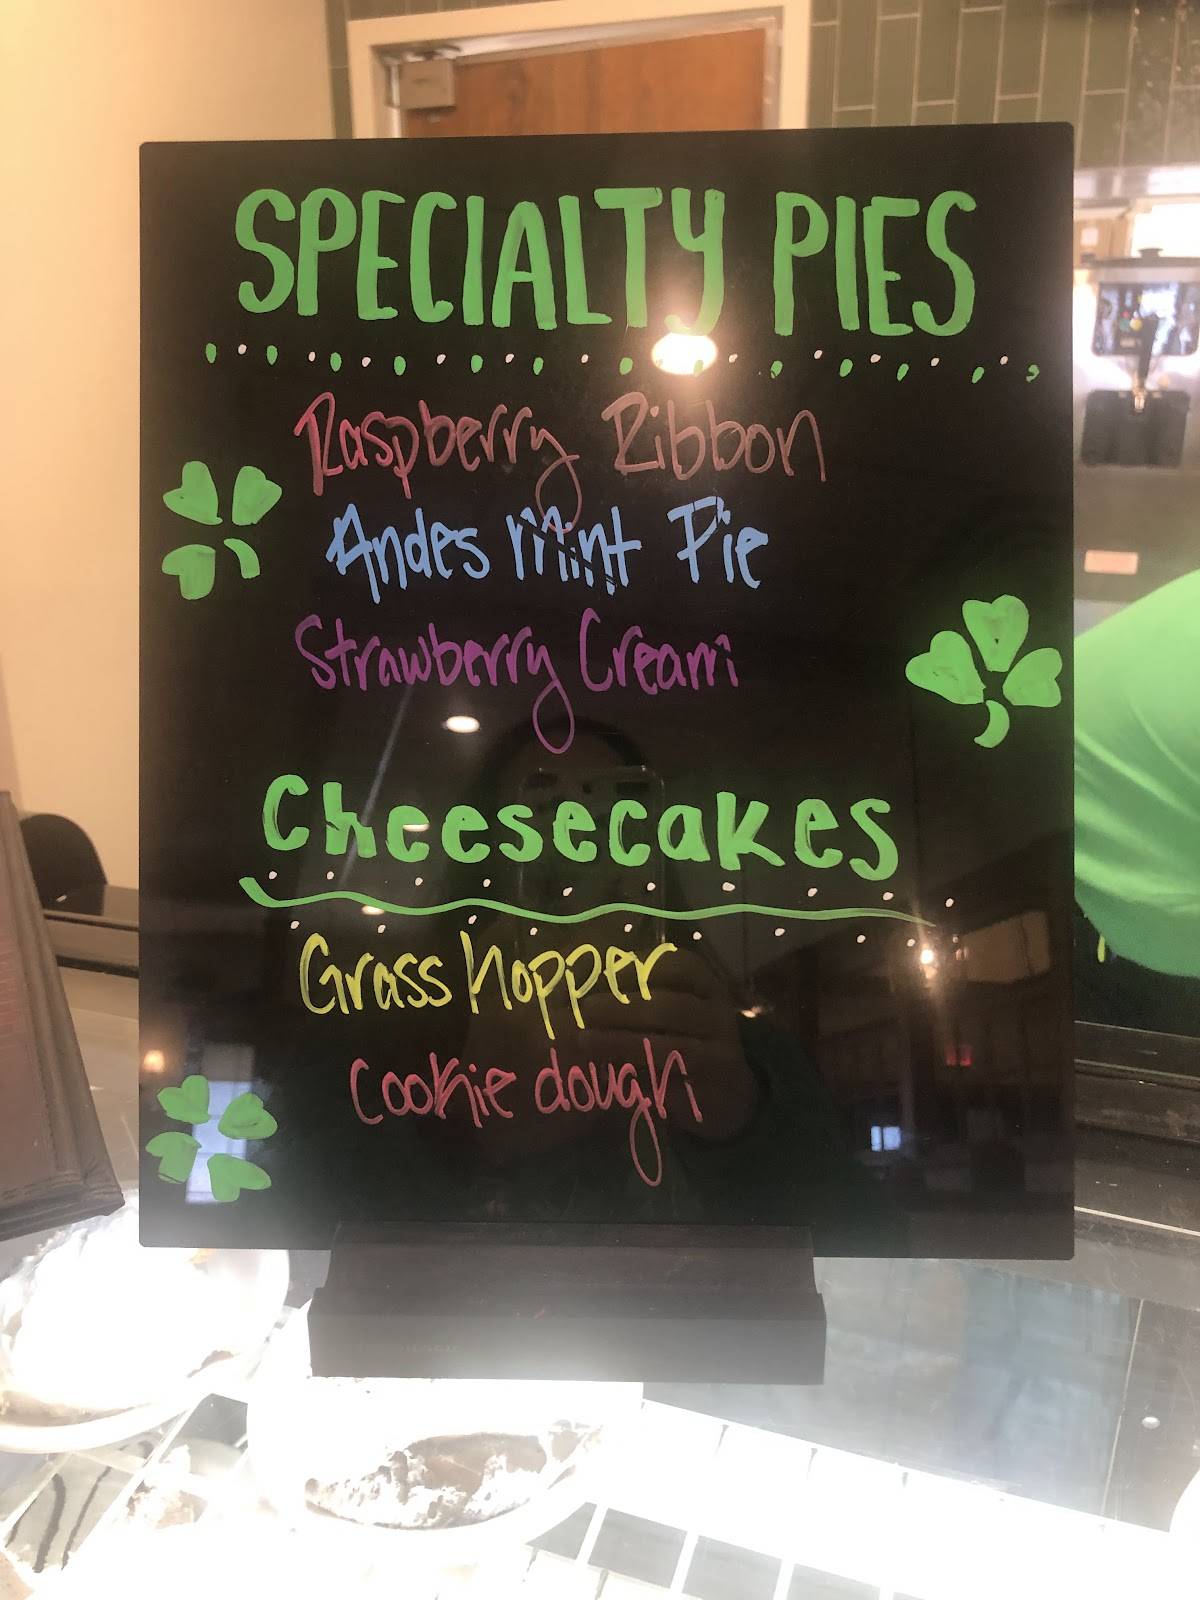 SPECIALTY PIES
Raspberry Ribbon
Andes Mint Pie
Strawberry Cream
Cheesecakes
Grass hopper
Cookie dough